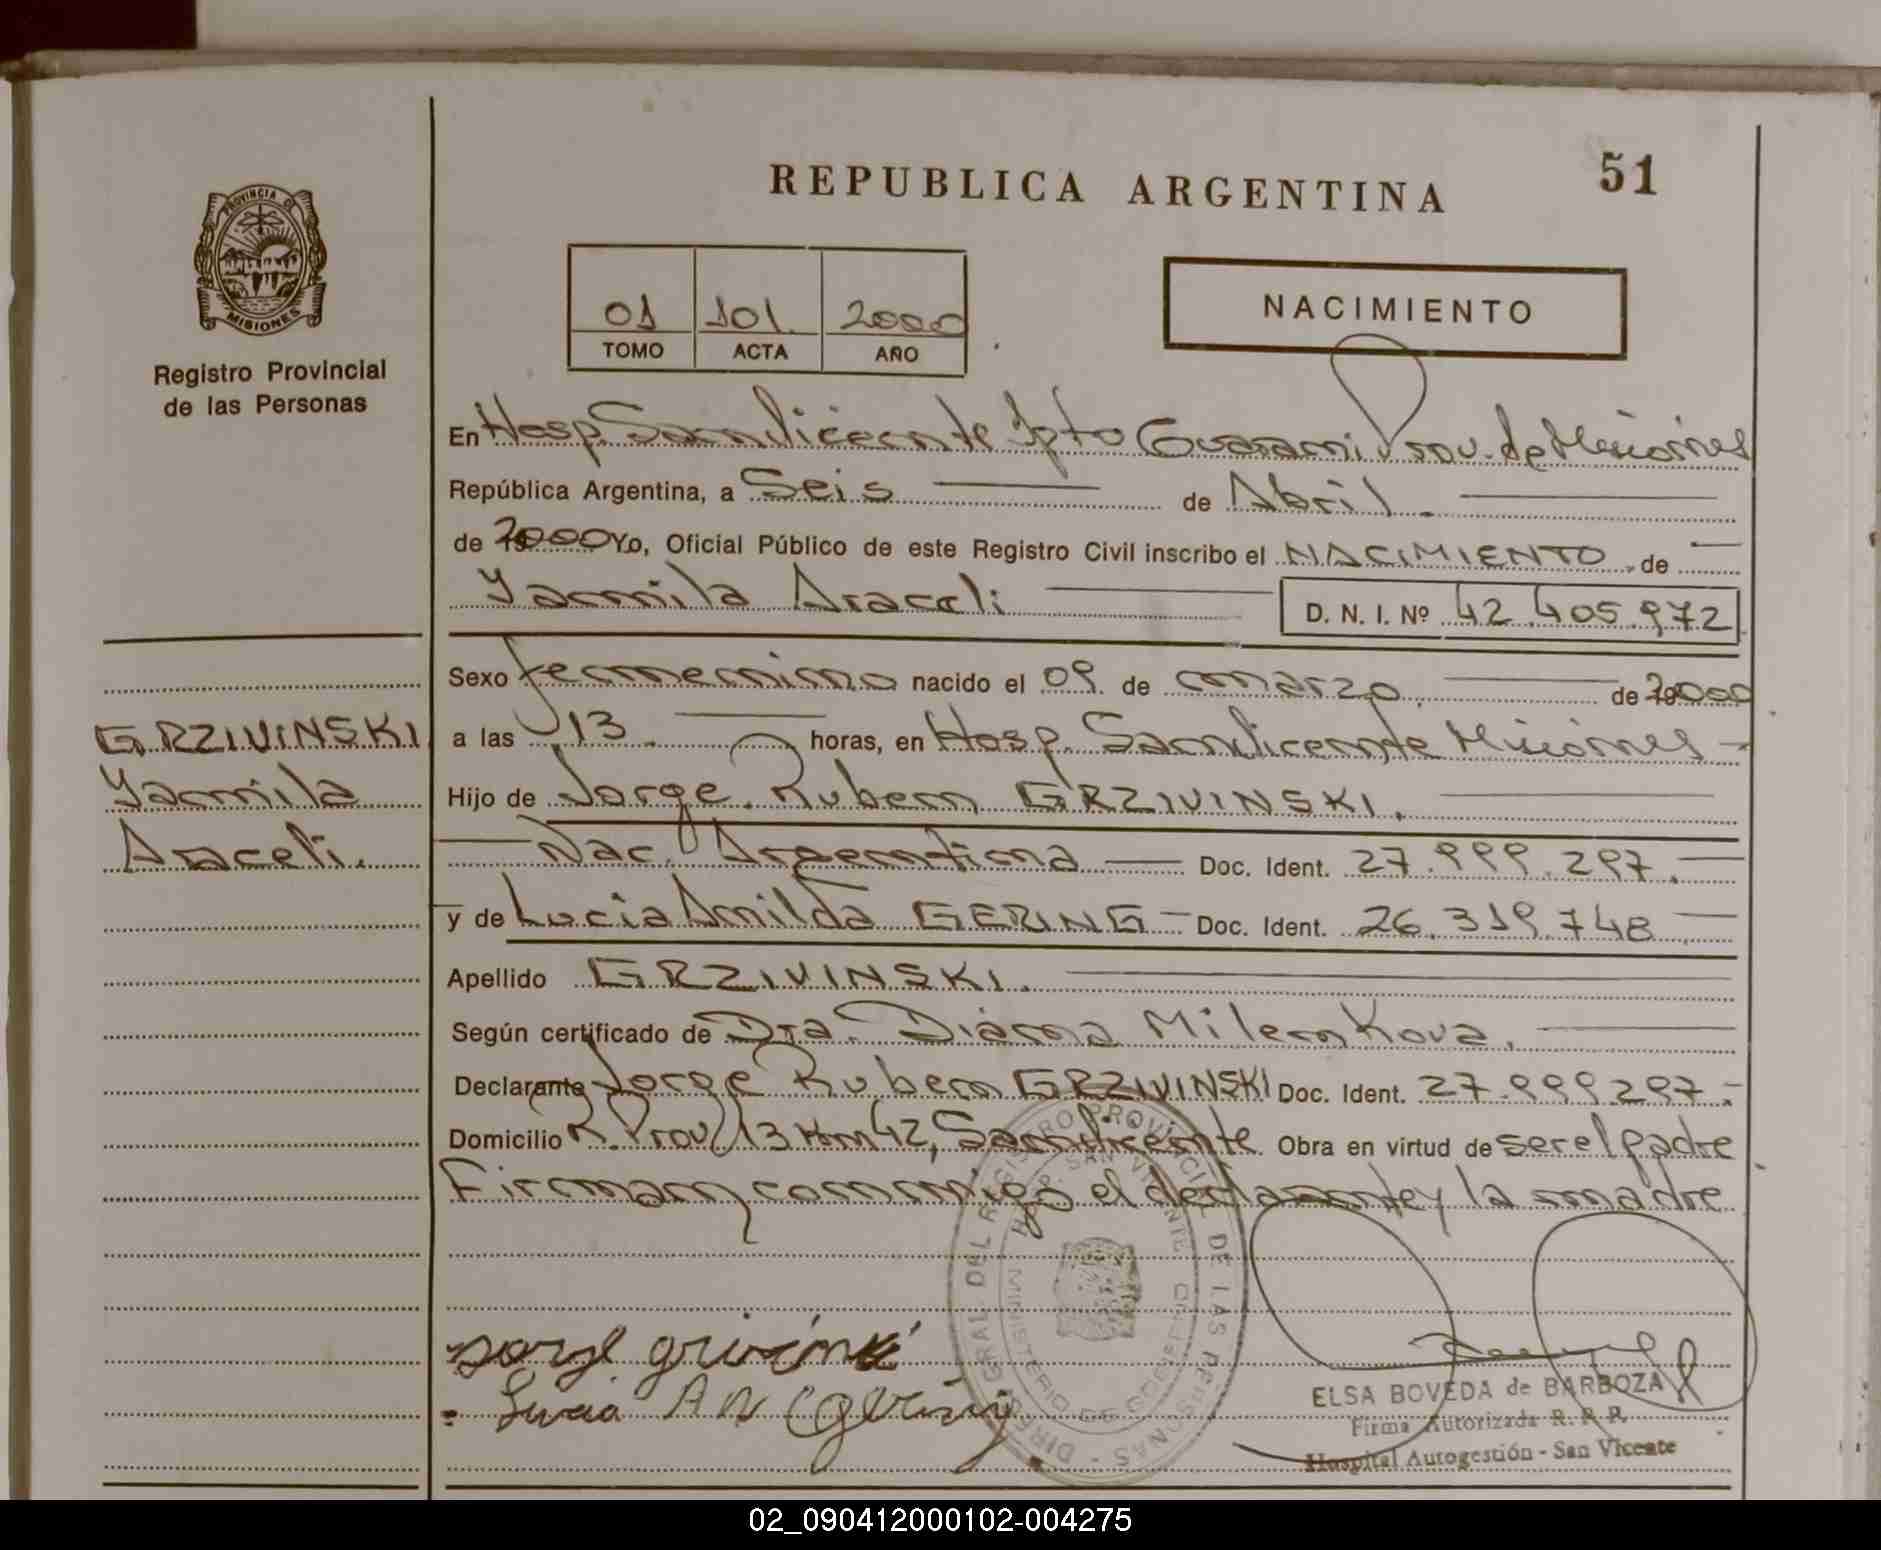 REPUBLICA ARGENTINA
51
PROVINCIA DE
MISIONES
Registro Provincial
de las Personas
01 101. 2000
TOMO ACTA AÑO
NACIMIENTO
En Hosp San Vicente Dpto Guarani Prov. de Misiones
República Argentina, a Seis de Abril.
de 2000 Yo, Oficial Público de este Registro Civil inscribo el NACIMIENTO de
Yamila Araceli D. N. I. Nº 42.405.972
Sexo femenino nacido el 09 de marzo de 2000
GRZIVINSKI
Yamila
Araceli.
a las 13 horas, en Hosp. San Vicente Misiones
Hijo de Jorge Ruben GRZIVINSKI.
Nac. Argentina Doc. Ident. 27.999.297.
y de Lucia Amilda GERING Doc. Ident. 26.319.748
Apellido GRZIVINSKI.
Según certificado de Dra. Diana Milenkova.
Declarante Jorge Ruben GRZIVINSKI Doc. Ident. 27.999.297.
Domicilio R. Prov 13 Km 42, San Vicente Obra en virtud de ser el padre
Firman conmigo el declarante y la madre
DIRECC. GRAL DEL REGISTRO PROVINCIAL DE LAS PERSONAS
HOSP. SAN VICENTE
MINISTERIO DE GOBIERNO
Lucia
ELSA BOVEDA de BARBOZA
Firma Autorizada R. P. P.
Hospital Autogestión - San Vicente
02_090412000102-004275